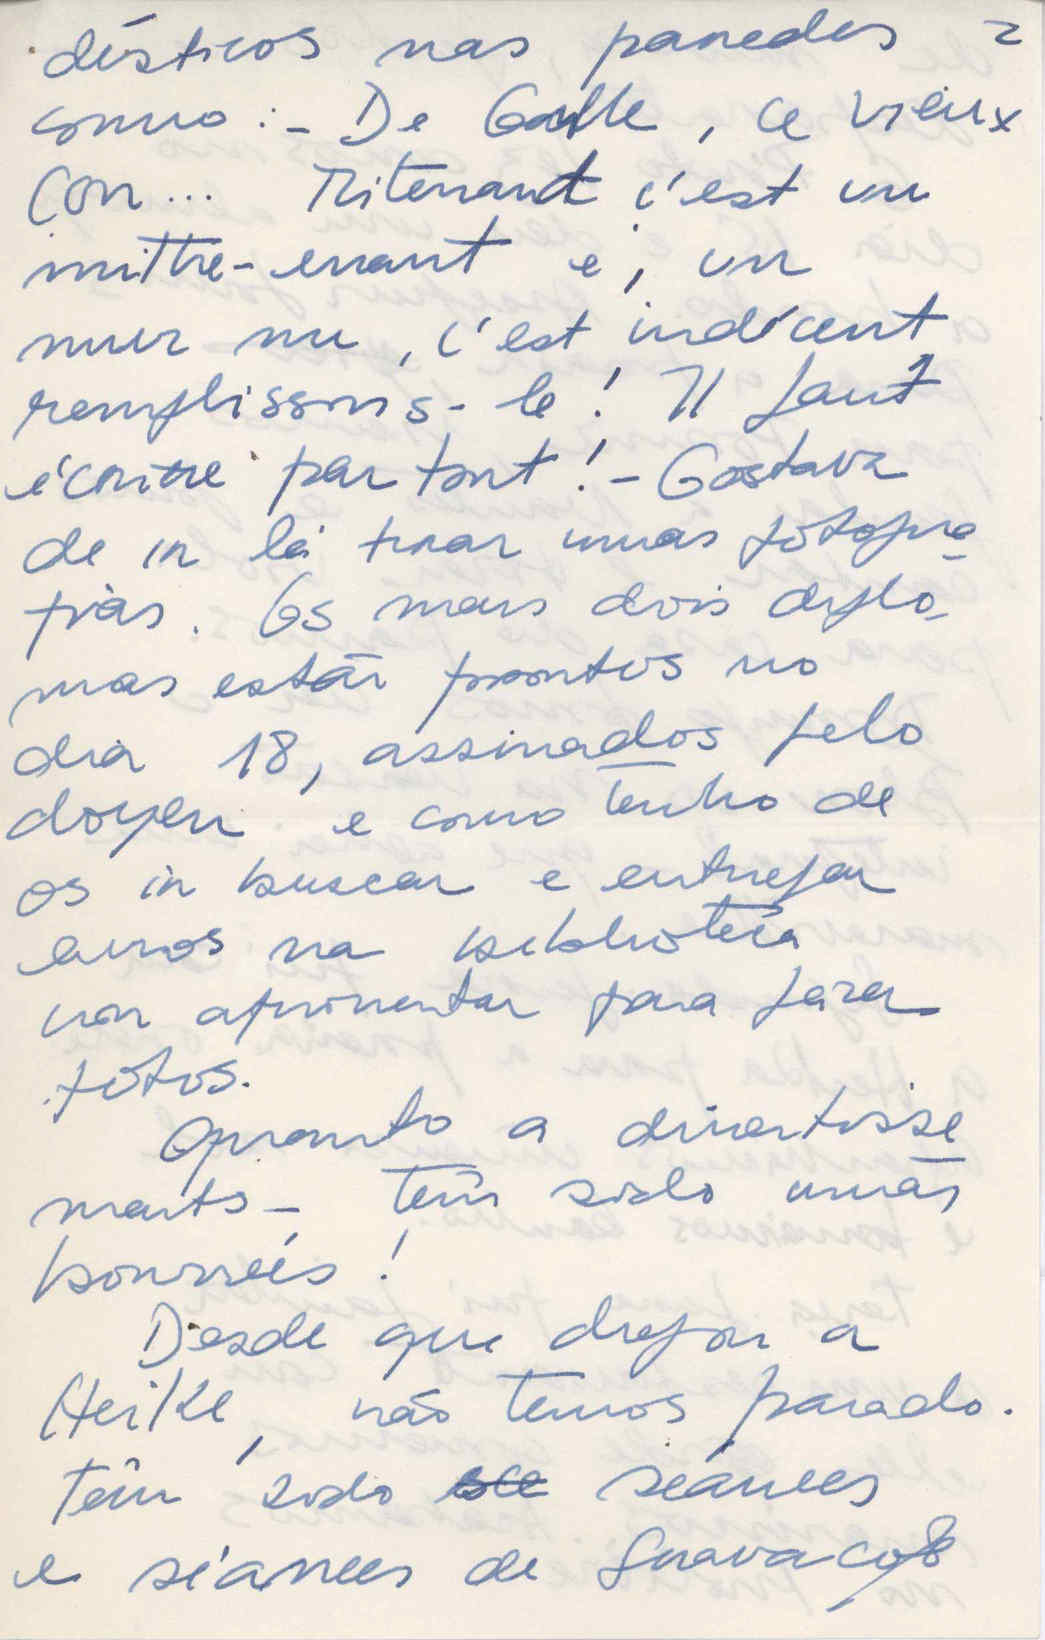 dísticos nas paredes 2
como:- De Gaulle, ce vieux
con... Mitterand c'est un
mitthe-errant e; un
mur nu, c'est indécent
remplissons-le! Il faut
écritre partout! - Gostava
de ir lá tirar umas fotogra-
fias. Os mais dois diplo-
mas estão prontos no
dia 18, assinados pelo
doyen e como tenho de
os ir buscar e entregar
livros na biblioteca
vou aproveitar para fazer
fotos.
Quanto a divertisse
ments - têm sido umas
bourrées!
Desde que chegou a
Heike, não temos parado.
Têm sido séances
e séances de